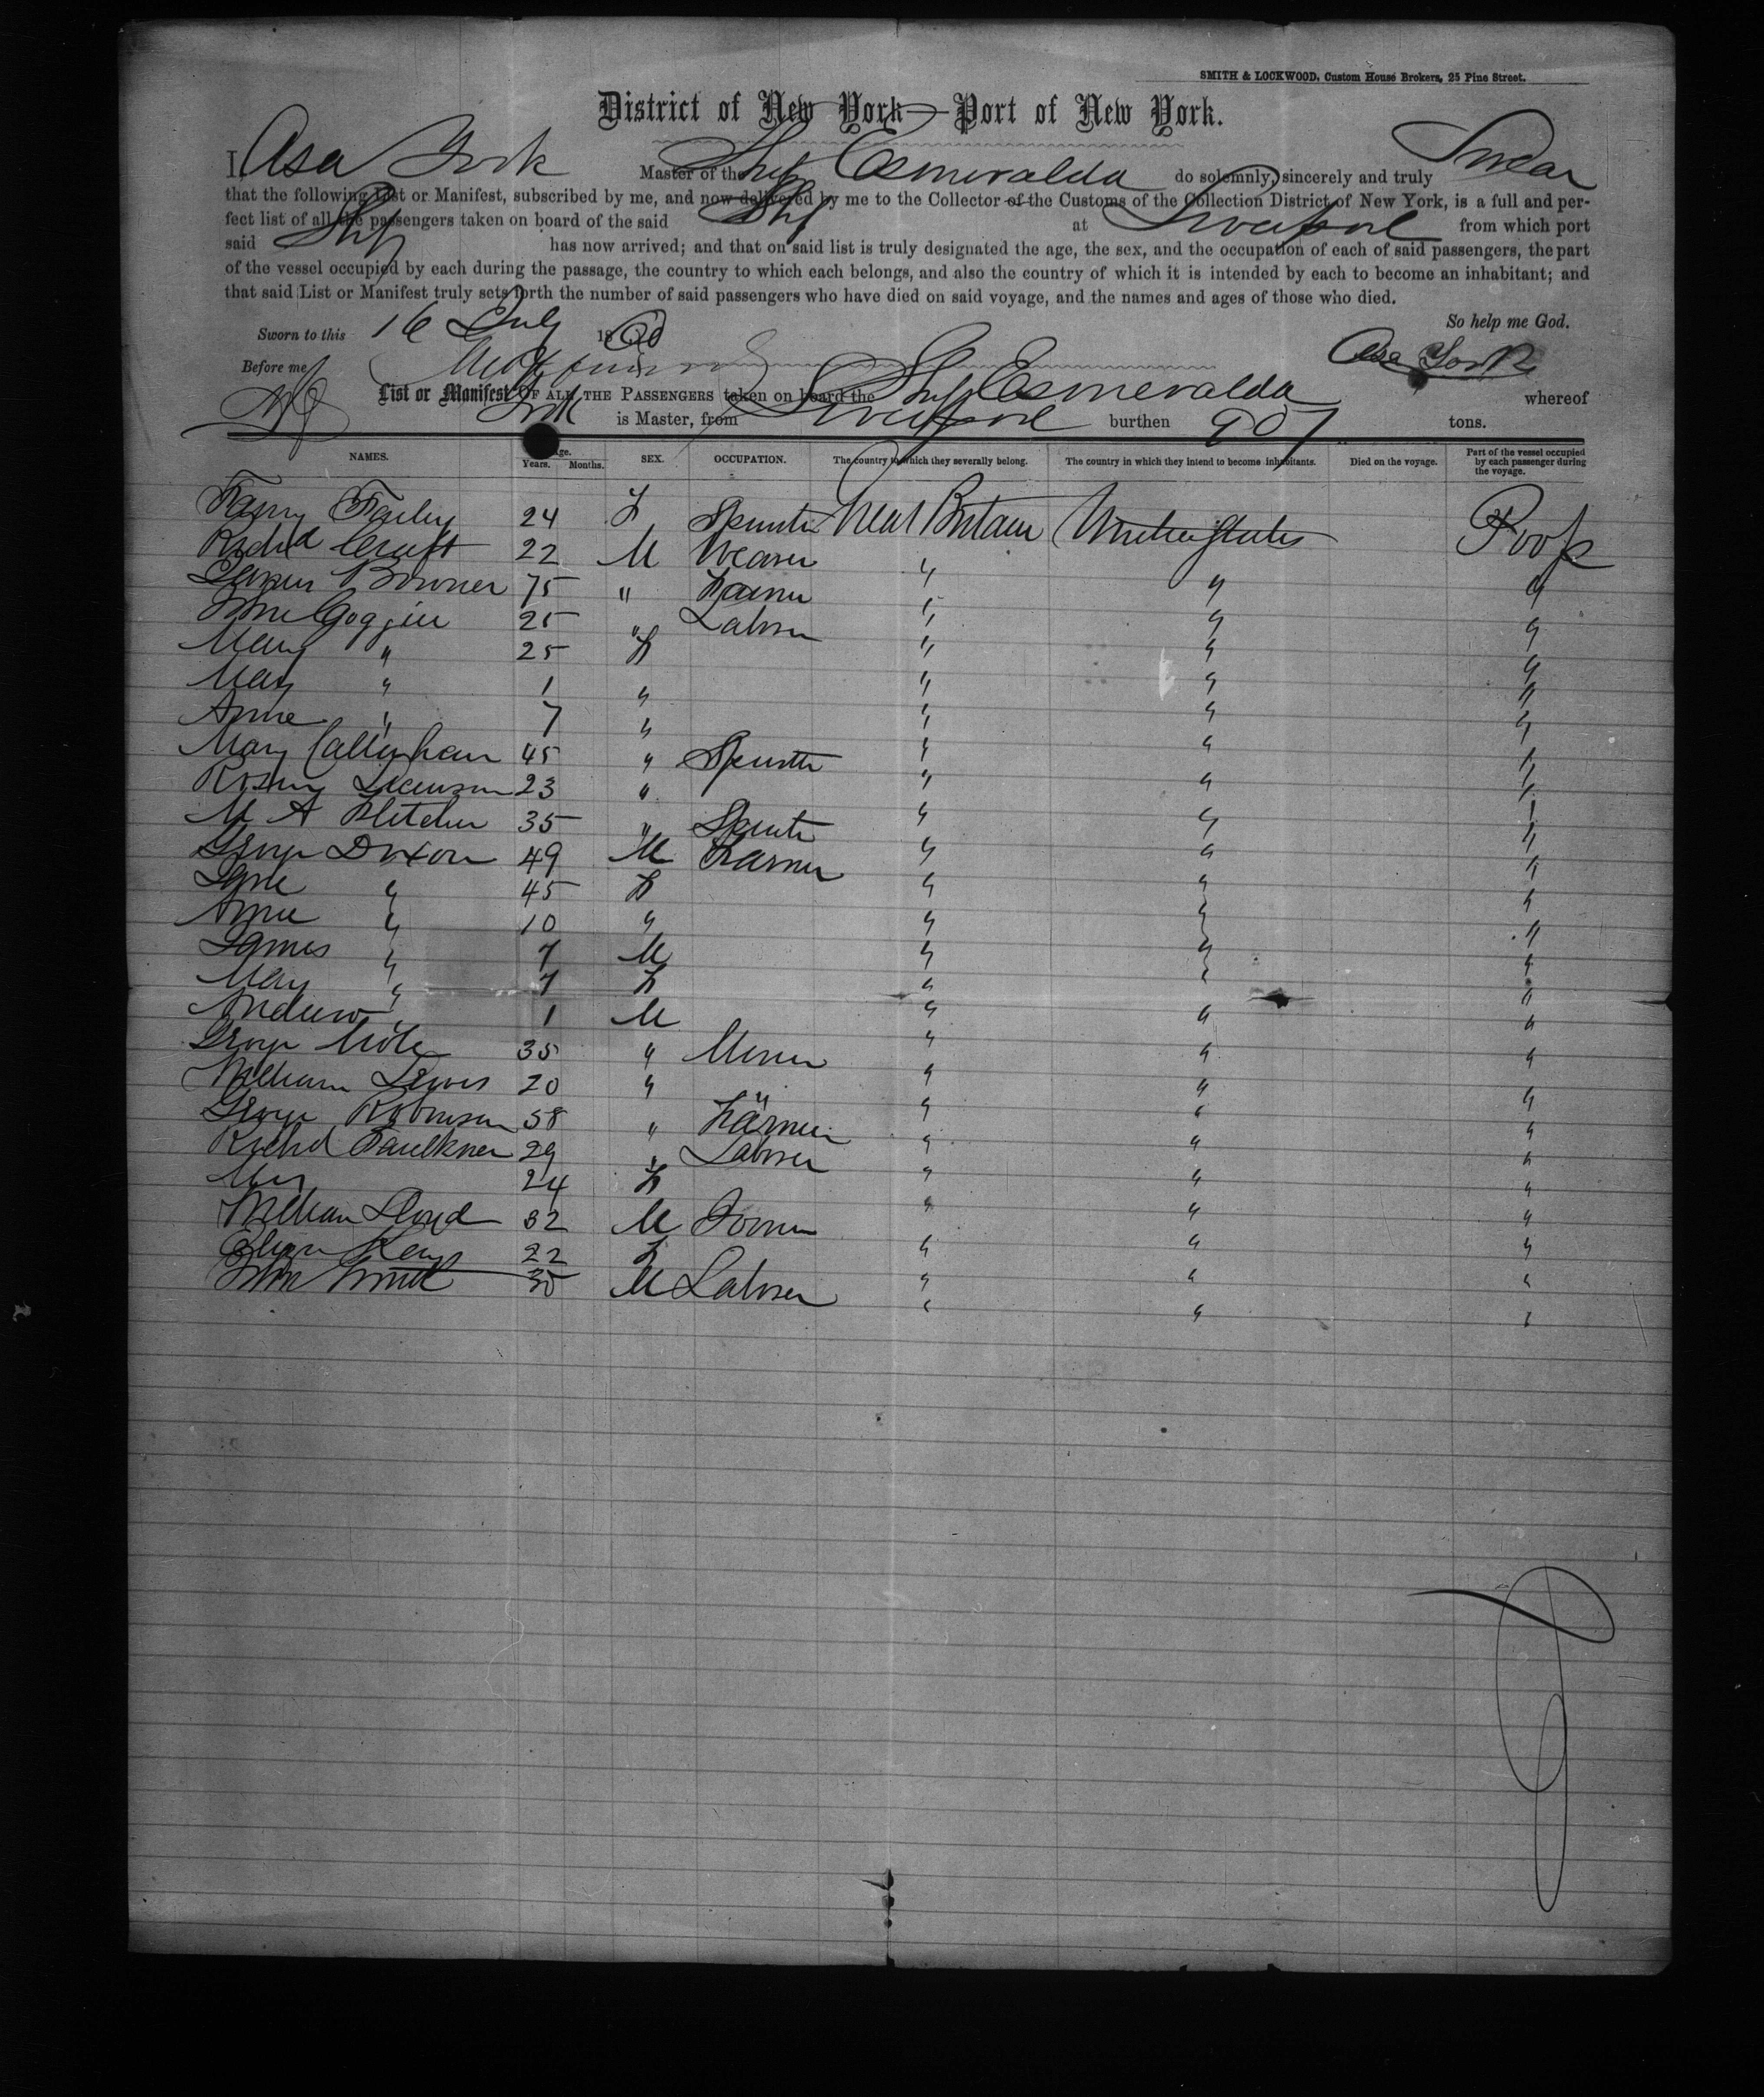 SMITH & LOCKWOOD, Custom House Brokers, 25 Pine Street.
District of New York—Port of New York.
I, Asa York Master of the Ship Esmeralda do solemnly, sincerely and truly Swear
that the following List or Manifest, subscribed by me, and now delivered by me to the Collector of the Customs of the Collection District of New York, is a full and per-
fect list of all the passengers taken on board of the said Ship at Liverpool from which port
said Ship has now arrived; and that on said list is truly designated the age, the sex, and the occupation of each of said passengers, the part
of the vessel occupied by each during the passage, the country to which each belongs, and also the country of which it is intended by each to become an inhabitant; and
that said List or Manifest truly sets forth the number of said passengers who have died on said voyage, and the names and ages of those who died.
So help me God.
Sworn to this 16 July 1860
Before me Asa York
List or Manifest OF ALL THE PASSENGERS taken on board the Ship Esmeralda whereof
York is Master, from Liverpool burthen 907 tons.
NAMES. Age. Years. Months. SEX. OCCUPATION. The country to which they severally belong. The country in which they intend to become inhabitants. Died on the voyage. Part of the vessel occupied by each passenger during the voyage.
24 F Great Britain United States Poop
Richd Craft 22 M Weaver " " "
75 " Farmer " " "
25 " Labor " " "
Mary " 25 F " " "
Mary " 1 " " " "
Anne " 7 " " " "
Mary Callaghan 45 " " " "
23 " " " "
M A Fletcher 35 " " " "
George Dixon 49 M Farmer " " "
Jane " 45 F " " "
Anne " 10 " " " "
James " 7 M " " "
Mary " 7 F " " "
Andrew " 1 M " " "
George 35 " Miner " " "
William Lewis 20 " " " " "
George Robinson 58 " Farmer " " "
Richd Faulkner 29 " Labor " " "
Mrs 24 F " " "
William Lloyd 32 M " " "
22 F " " "
John Smith 30 M Labor " " "